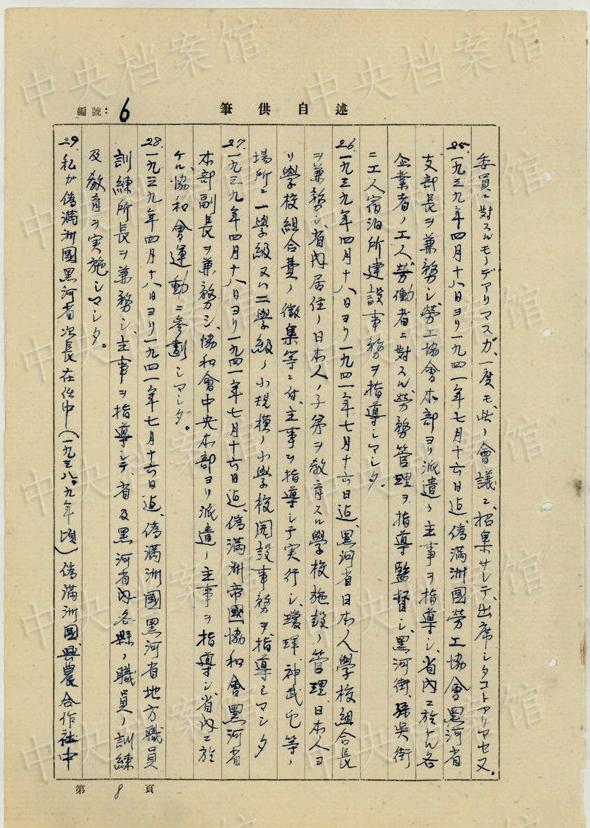 述自供筆
編號：6
委員ニ對スルモノデアリマスガ、一度モ此ノ會議ニ招集サレテ、出席シタコトアリマセヌ。
25.一九三九年四月十八日ヨリ一九四一年七月十六日迄、偽滿洲國勞工協會黑河省
支部長ヲ兼務シ、勞工協會本部ヨリ派遣ノ主事ヲ指導シ、省內ニ於ケル各
企業者ノ工人、勞働者ニ對スル勞務管理ヲ指導監督シ、黑河街、孫吳街
ニ工人宿泊所建設事務ヲ指導シマシタ。
26.一九三九年四月十八日ヨリ一九四一年七月十六日迄、黑河省日本人學校組合長
ヲ兼務シ、省內居住ノ日本人ノ子弟ヲ教育スル學校施設ノ管理、日本人ヨ
リ學校組合費ノ徵集等ニ付、主事ヲ指導シテ実行シ、璦琿、神武屯等ノ
場所ニ一學級又ハ二學級ノ小規模ノ小學校開設事務ヲ指導シマシタ
27.一九三九年四月十八日ヨリ一九四一年七月十六日迄、偽滿洲帝國協和會黑河省
本部副長ヲ兼務シ、協和會中央本部ヨリ派遣ノ主事ヲ指導シ、省內ニ於
ケル協和會運動ニ参劃シマシタ。
28.一九三九年四月十八日ヨリ一九四一年七月十六日迄、偽滿洲國黑河省地方職員
訓練所長ヲ兼務シ、主事ヲ指導シテ、省及黑河省內各縣ノ職員ノ訓練
及教育ヲ実施シマシタ。
29.私ガ偽滿洲國黑河省次長在任中（一九三八、九年頃）偽滿洲國興農合作社中
第8頁
中央档案馆